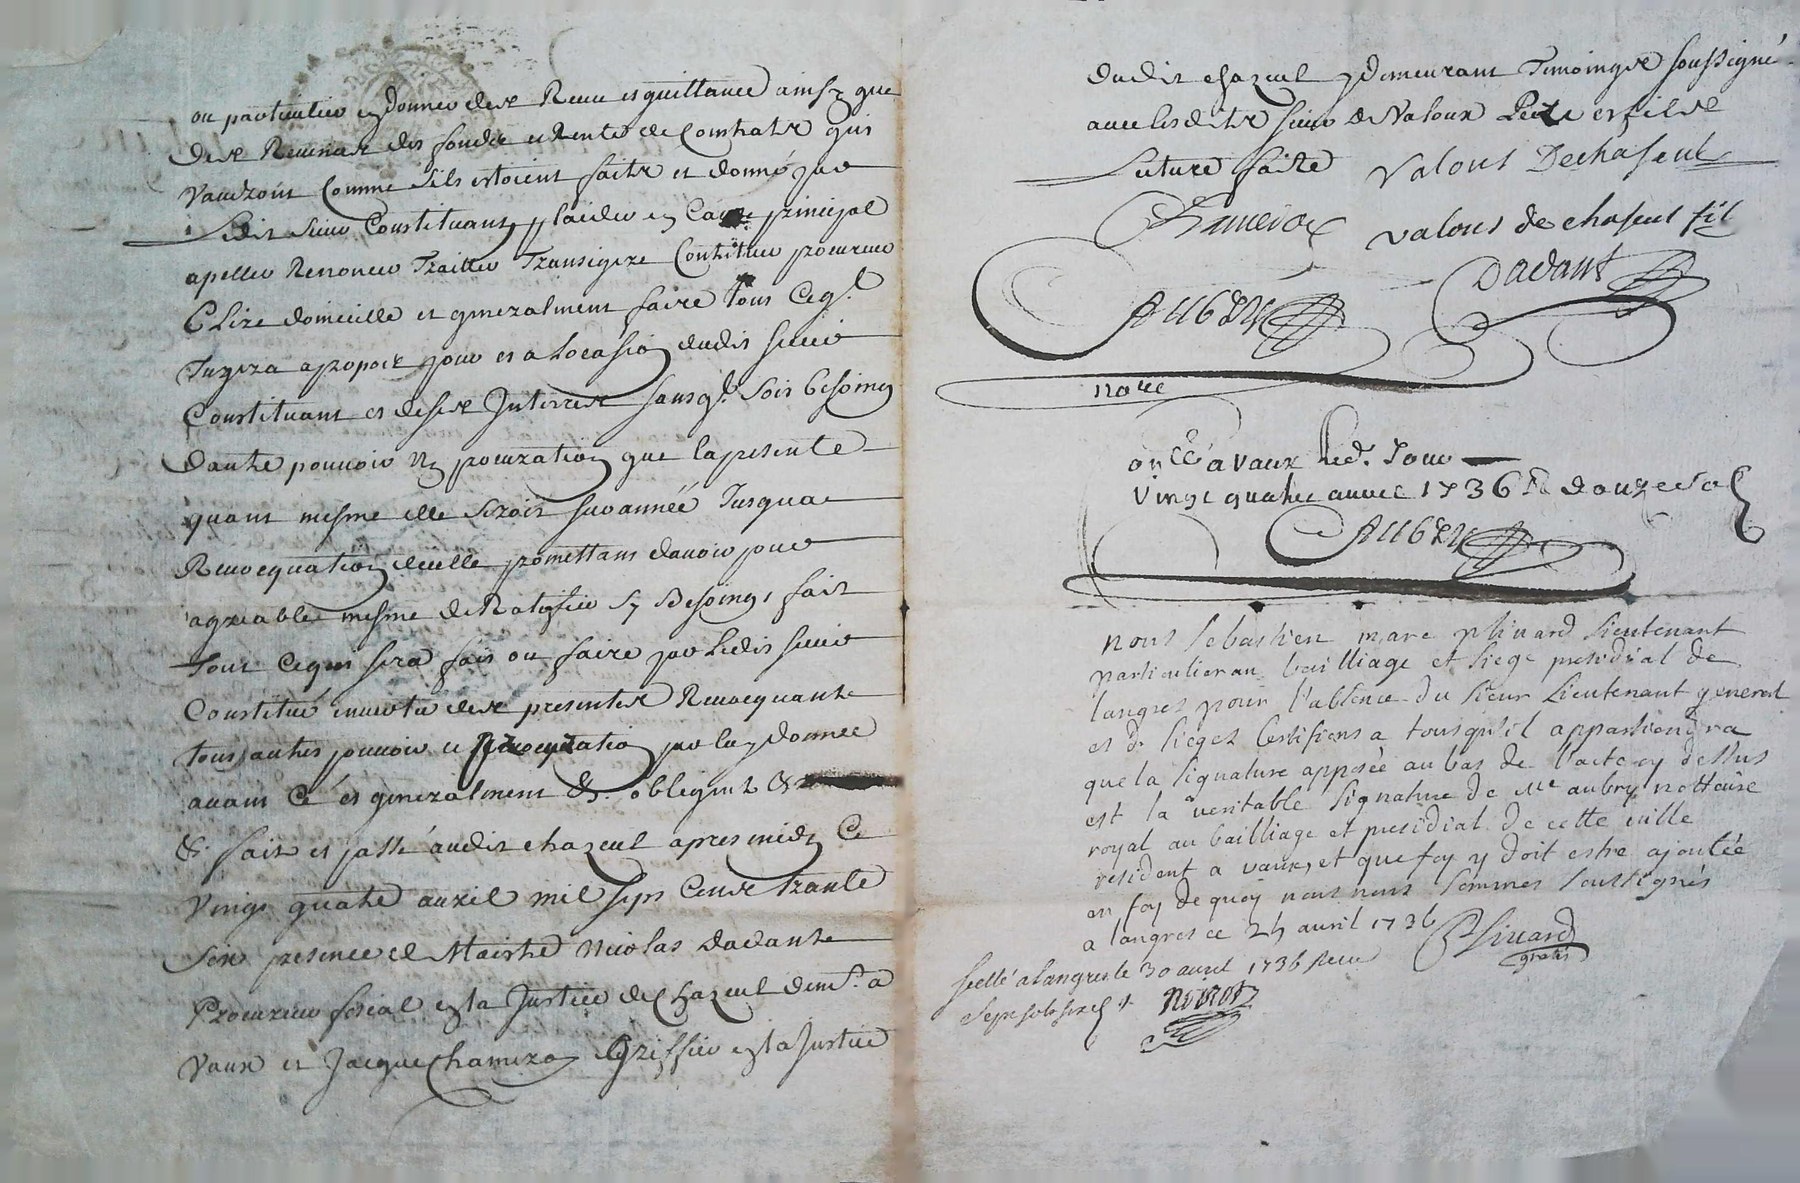 ou particulier en donner des Receu et quittance ainsy que
des Revenus des fondz et Rente de Contrats qui
vaudront Comme sils estoient faits et donné par
Ledit sieur Constituant, plaider en Cause principal
apeller Renoncer Traitter Transigere Constituer procureur
Elire domicille et generalment faire tous Ceq.
Jugera apropos pour et a Locasion dudit sieur
Constituant et de ses Interrest sans q. soit besoing
dautre pouvoir ny procuration que la presente
quant mesme elle seroit surannée Jusqua
Revocquation dicelle promettant davoir pour
agreable mesme de Ratiffier sy Besoing, fait
tout Cequi sera fait ou faire par Ledit sieur
Constitué en vertu des presentes Revocquante
tous autres pouvoir et procuration par luy donnee
avant Cé et generalment &. obligent &
&. fait et passé audit chazeul apres midy Ce
vingt quatre avril mil sept Cents trante
six presence de Maistre Nicolas dadant
Procureur fiscal en la Justice de Chazeul dem.t a
vaux et Jacque Chameroy Greffier en la Justice
dudit chazeul y demeurant Temoings soussigné
avec lesdits sieur de Valoux Pere et fils
Lecture faitte Valous Dechaseul
Chameroy valous de chaseul fil
Dadant
AUBRY
note
on.lé a vaux Led. Jour
vingt quatre avril 1736 R douze sol
AUBRY
nous sebastien marc plivard lieutenant
particulier au bailliage et siege presidial de
langres pour l'absence du sieur lieutenant general
es d. sieges Certifions a tous qu'il appartiendra
que la signature apposée au bas de l'acte cy dessus
est la veritable signature de Me aubry nottaire
royal au bailliage et presidial de cette ville
resident a vaux, et que foy y doit estre ajoutée
en foy de quoy nous nous sommes soussignés
a langres ce 24 avril 1736 Plivard
gratis
scellé a langres le 30 avril 1736 Receu
sept sols six d.